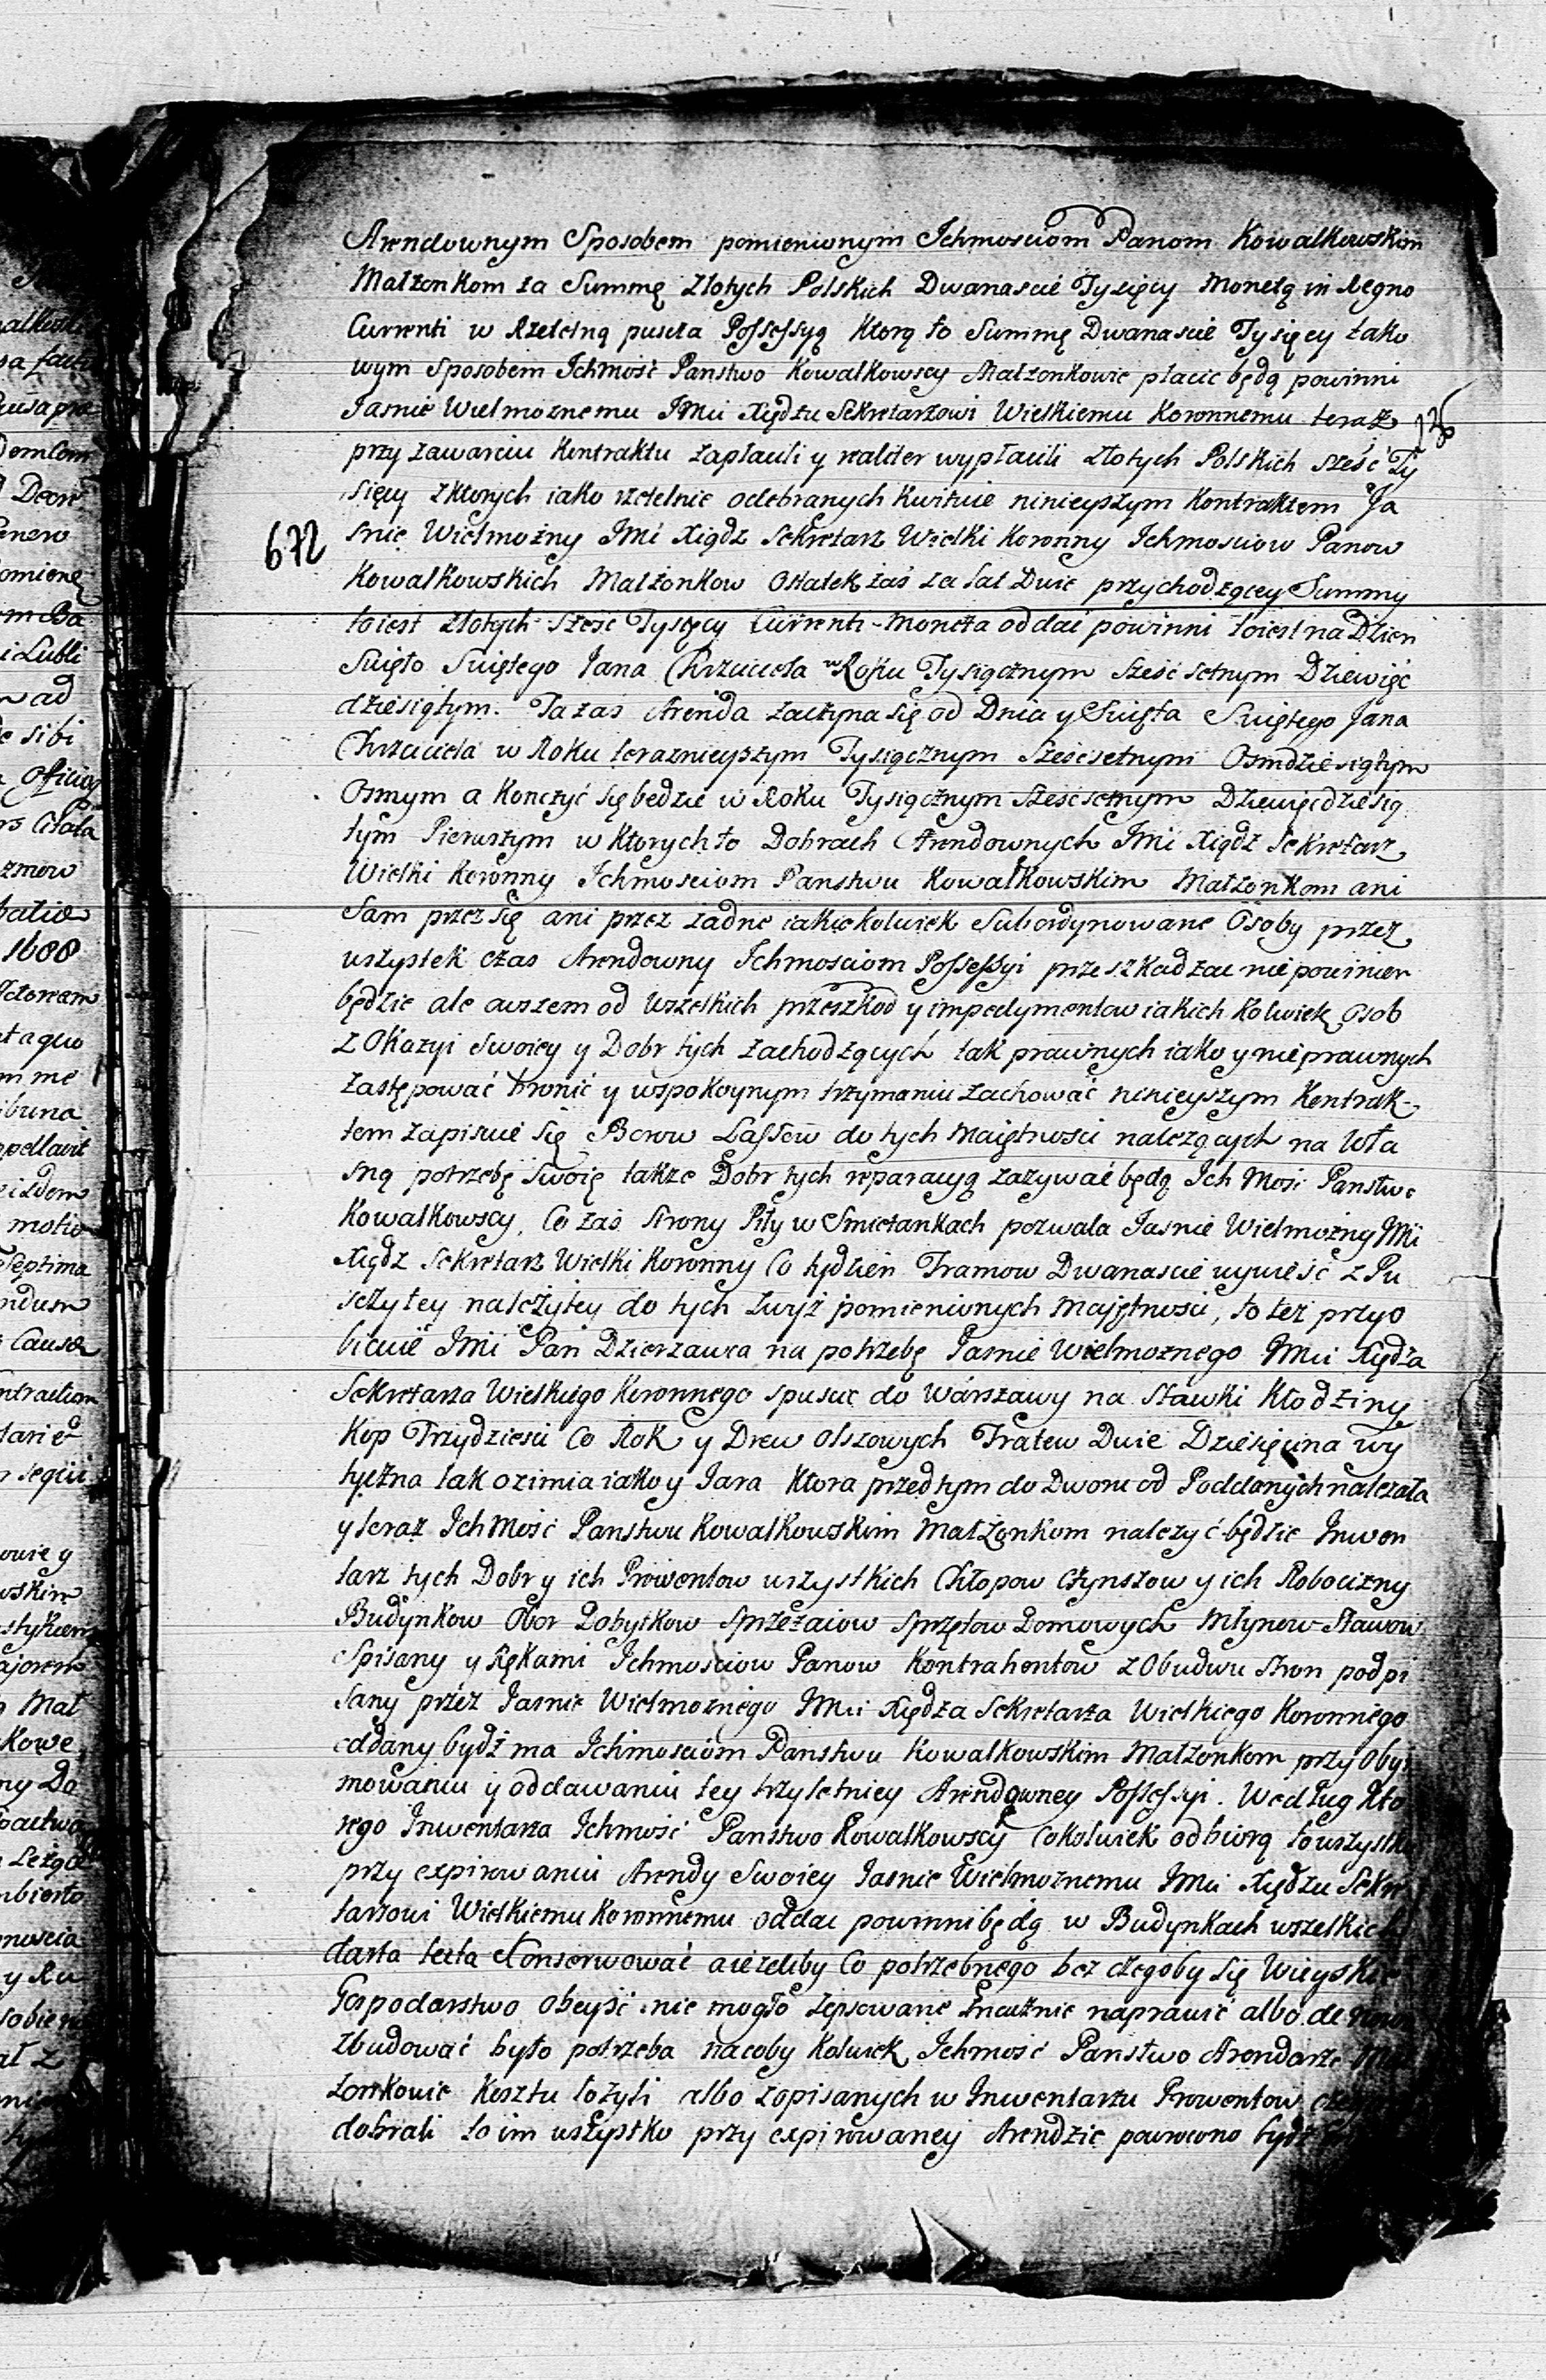 Arendownym Sposobem pomienionym Ichmosciom Panom Kowalkowskim
Małzonkom za Summę Złotych Polskich Dwanascie Tysięcy Monetą in Regno
Currenti w Rzetelną puscza Possessyą Ktorą to Summę Dwanascie Tysięcy tako
wym Sposobem Ichmość Panstwo Kowalkowscy Małzonkowie płacic będą powinni
Jasnie Wielmoznemu JMci Xiędzu Sekretarzowi Wielkiemu Koronnemu teraz
136
przy zawarciu Kontraktu zapłacili y realiter wypłacili złotych Polskich sześć Ty
sięcy z ktorych iako rzetelnie odebranych kwituie ninieyszym Kontraktem Ja
672
snie Wielmożny JMć Xiądz Sekretarz Wielki Koronny Ichmosciow Panow
Kowalkowskich Malżonkow Ostatek żaś za lat Dwie przychodzącey Summy
toiest złotych sześć Tysięcy Currenti Moneta oddać powinni toiest na Dzien
Swięto Swiętego Jana Chrzciciela w Roku Tysiącznym sześć setnym Dziewięć
dziesiątym. Ta zaś Arenda zaczyna się od Dnia y Swięta Swiętego Jana
Chrzciciela w Roku terazneyszym Tysiącznym Sześćsetnym Osmdziesiątym
Osmym a Konczyć się bedzie w Roku Tysiącznym sześcsetnym Dziewięcdziesią
tym Pierwszym w Ktorych to Dobrach Arendownych JMć Xiądz Sekretarz
Wielki Koronny Ichmosciom Panstwu Kowalkowskim Małzonkom ani
Sam przez się ani przez żadne iakiekolwiek Subordynowane Osoby przez
wszystek czas Arendowny Ichmosciom Possessyi przeszkadzac nie powinien
będzie ale owszem od wszelkich przeszkod y impedymentow iakich kolwiek osob
z Okazyi swoiey y Dobr tych zachodzących tak prawnych iako y nieprawnych
zastępować bronić y wspokoynym trzymaniu zachować ninieyszym Kontrak-
tem zapisuie się Borow Lassow do tych Maiętnosci nalezących na wła
sną potrzebę swoię takze Dobr tych reparacyą zażywać będą Ich Mość Panstwo
Kowalkowscy, Co zaś strony Piły w Smietankach pozwala Jasnie Wielmożny JMć
Xiądz Sekretarz Wielki Koronny Co tydzien Tramow Dwanascie wywieść z Pu
szczy tey należytey do tych zwyż pomienionych Majętnosci, to też przyo
biecuie JMć Pan Dzierzawca na potrzebę Jasnie Wielmoznego JMci Xiędza
Sekretarza Wielkiego Koronnego spuscic do Warszawy na Stawki Kłodziny
Kop Trzydziesci Co Rok y Drew olszowych Tratew Dwie Dziesięcina wy
tyczna tak ozimia iako y Jara Ktora przedtym do Dworu od Poddanych nalezała
y teraz IchMość Panstwu Kowalkowskim Małżonkom nalezyć będzie Inwen
tarz tych Dobr y ich Prowentow wszystkich Chłopow Czynszow y ich Robocizny
Budynkow Obor Dobytkow sprzężaiow sprzętow Domowych Młynow Stawow
Spisany y Rękami Ichmosciow Panow Kontrahentow z Obudwu stron podpi
sany przez Jasnie Wielmoznego JMci Xiędza Sekretarza Wielkiego Koronnego
oddany bydź ma Ichmosciom Panstwu Kowalkowskim Małzonkom przy oby
mowaniu y oddawaniu tey trzyletniey Arendowney Possessyi. Według Kto
rego Inwentarza Ichmość Panstwo Kowalkowscy Cokolwiek odbiorą to wszystko
przy expirowaniu Arendy Swoiey Jasnie Wielmoznemu JMci Xiędzu Sekre
tarzowi Wielkiemu Koronnemu oddac powinni będą w Budynkach wszelkich
darta tecta Konserwować a ieżeliby Co potrzebnego bez czegoby się Wieyskie
Gospodarstwo obeyść nie mogło zepsowane znacznie naprawić albo de novo
zbudować było potrzeba nacoby kolwiek Ichmość Panstwo Arendarze
zonkowie Kosztu łożyli albo zopisanych w Inwentarzu Prowentow
dobrali to im wszystko przy expirowaney Arendzie powrocono bydź